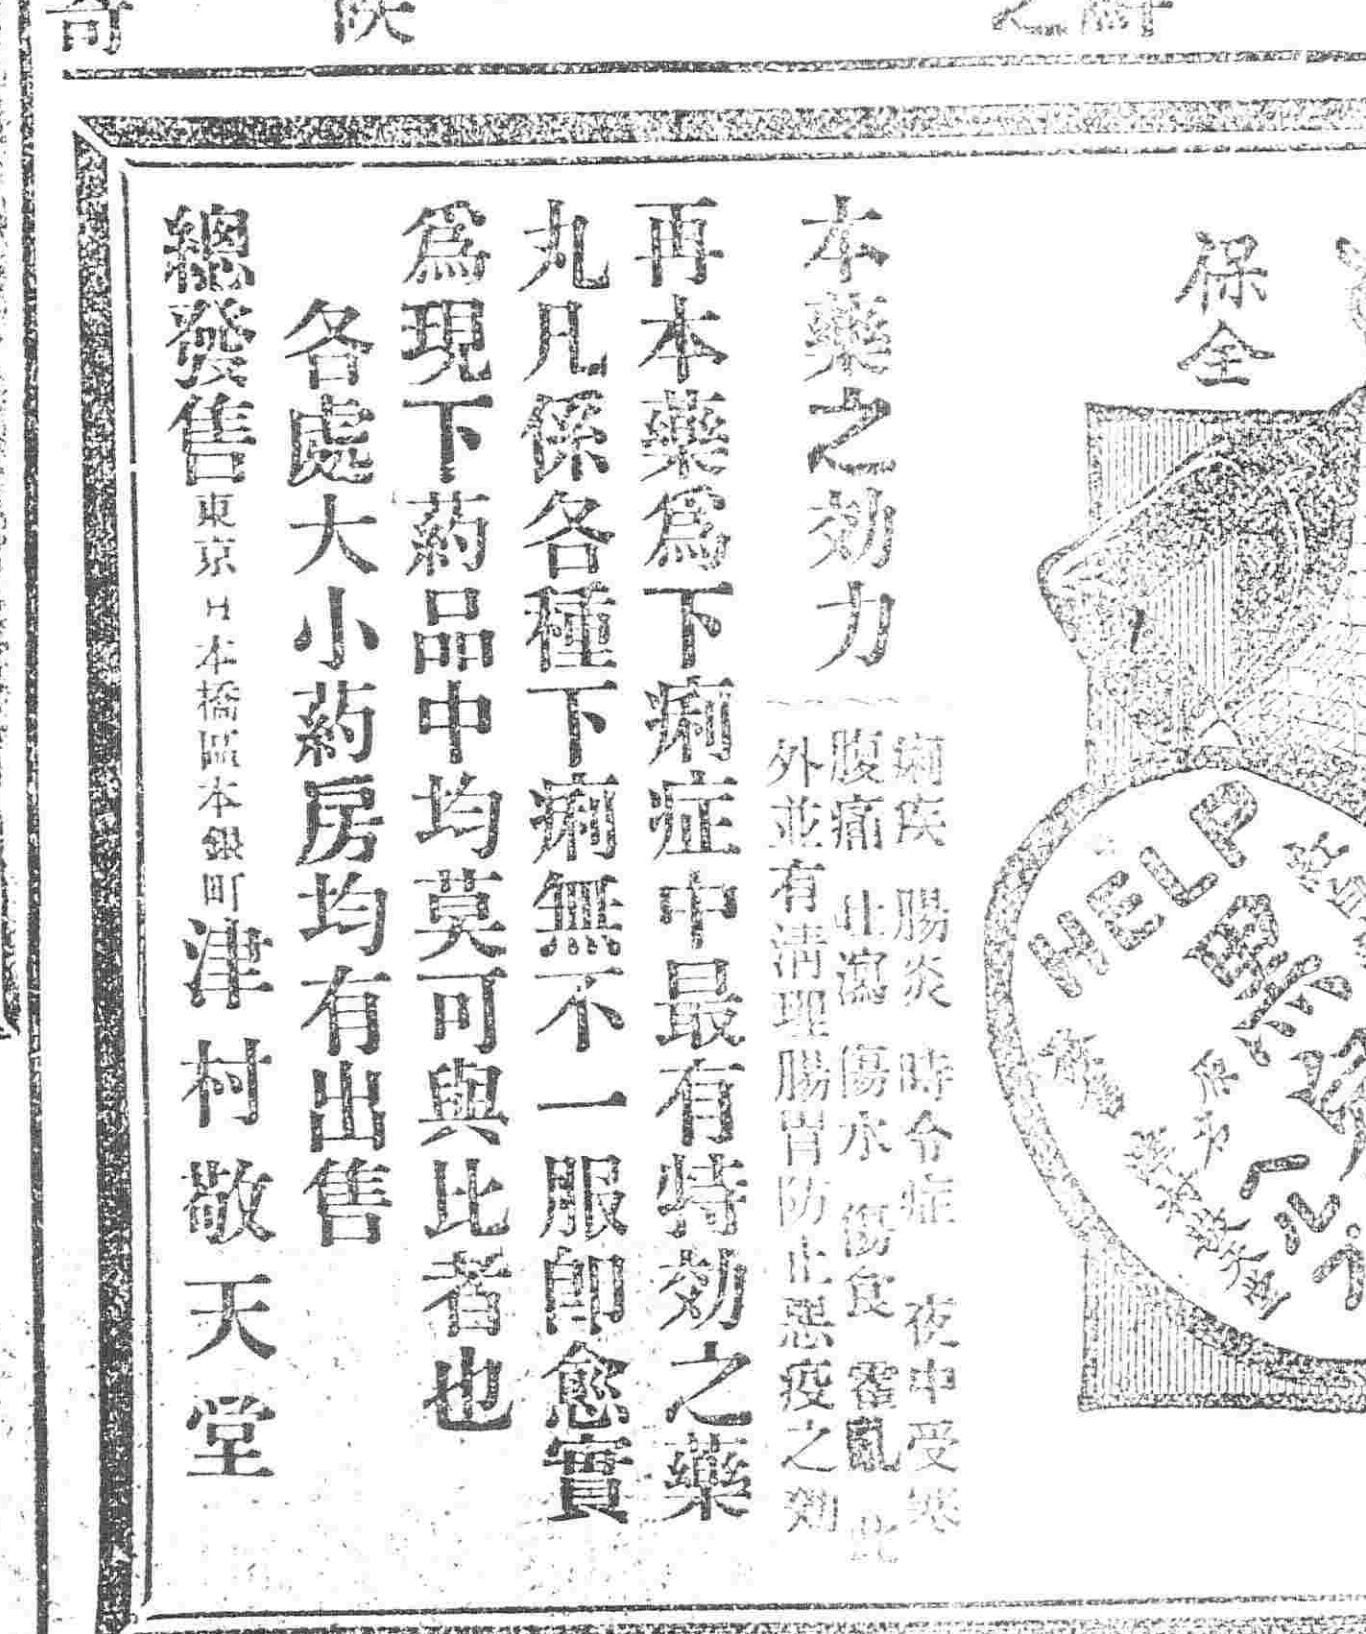 保全
HELP
本藥之効力
痢疾 腸炎 時令症 夜中受寒
腹痛 吐瀉 傷水 傷食 霍亂 此
外並有淸理腸胃防止惡疫之効
再本藥爲下痢症中最有特効之藥
丸凡係各種下痢無不一服卽愈實
爲現下葯品中均莫可與比者也
各處大小葯房均有出售
總發售東京日本橋區本銀町津村敬天堂